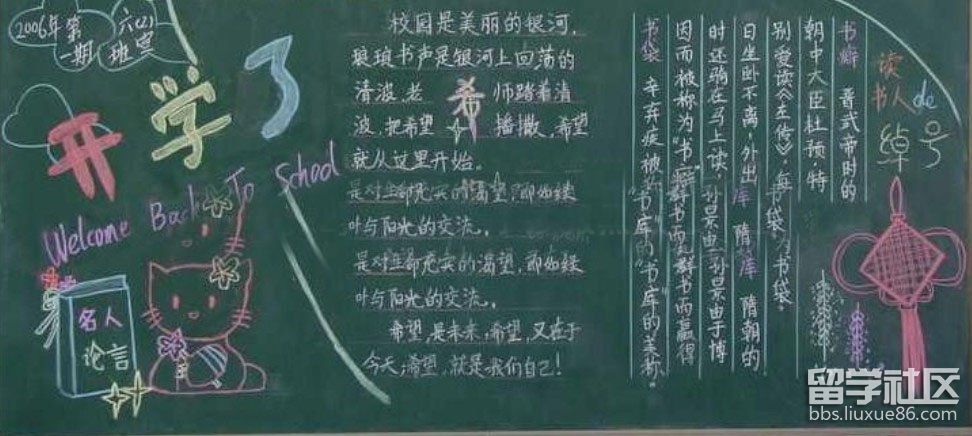 2006年第
一期
六(2)
班宣
开学了
Welcome Back To School
名人
论言
校园是美丽的银河,
琅琅书声是银河上回荡的
清波,老 希 师踏着清
波,把希望 播撒,希望
就从这里开始。
是对生命充实的渴望,即如绿
叶与阳光的交流。
是对生命充实的渴望,即如绿
叶与阳光的交流。
希望,是未来,希望,又在于
今天,希望,就是我们自己!
读
书人de
绰号
书癖 晋武帝时的
朝中大臣杜预,特
别爱读《左传》,每
日坐卧不离,外出
时还驹在马上读,
因而被称为"书
书袋
书库 隋朝的
孙景由于博
群书而赢得
"书库"的美称。
留学社区
bbs.liuxue86.com